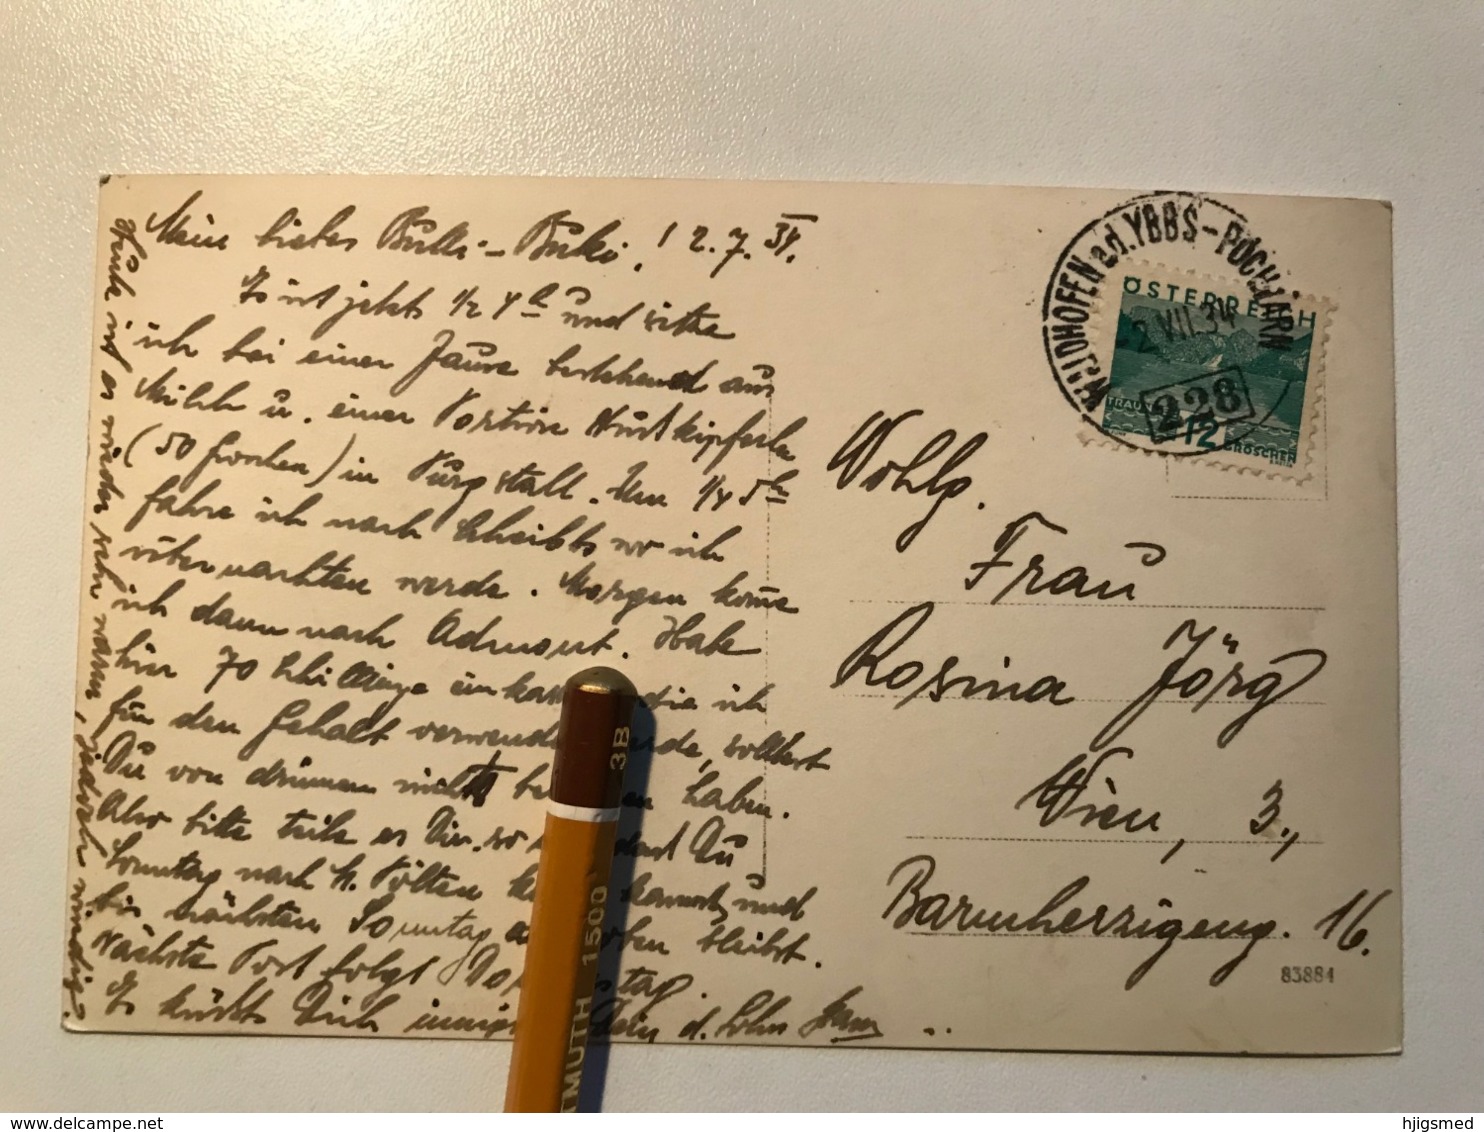 Mein liebes Bulli-Buki! 2.7.34.
Es ist jetzt 1/2 4h und sitze
ich bei einer Jause bestehend aus
Milch u. einer Portion Nusskipferln
(50 Groschen) in Purgstall. Um 1/4 5h
fahre ich nach Scheibbs wo ich
übernachten werde. Morgen komme
ich dann nach Admont. Habe
hier 70 Schillinge die ich
für den Gehalt, solltest
Du von drinnen nicht haben.
Also bitte teile es Dir so Du
Sonntag nach St. Pölten kannst und
bis nächsten Sonntag bleibst.
Nächste Post folgt
Es küsst Dich innigst Dein d. Sohn
Heute ist es wieder sehr warm, jedoch windig.
WAIDHOFEN a.d. YBBS - PÖCHLARN
2 VII. 34
228
ÖSTERREICH
TRAUN
12
GROSCHEN
Wohlg.
Frau
Rosina Jörg
Wien, 3.,
Barmherzigeng. 16.
83884
3B
1500
hjigsmed
www.delcampe.net